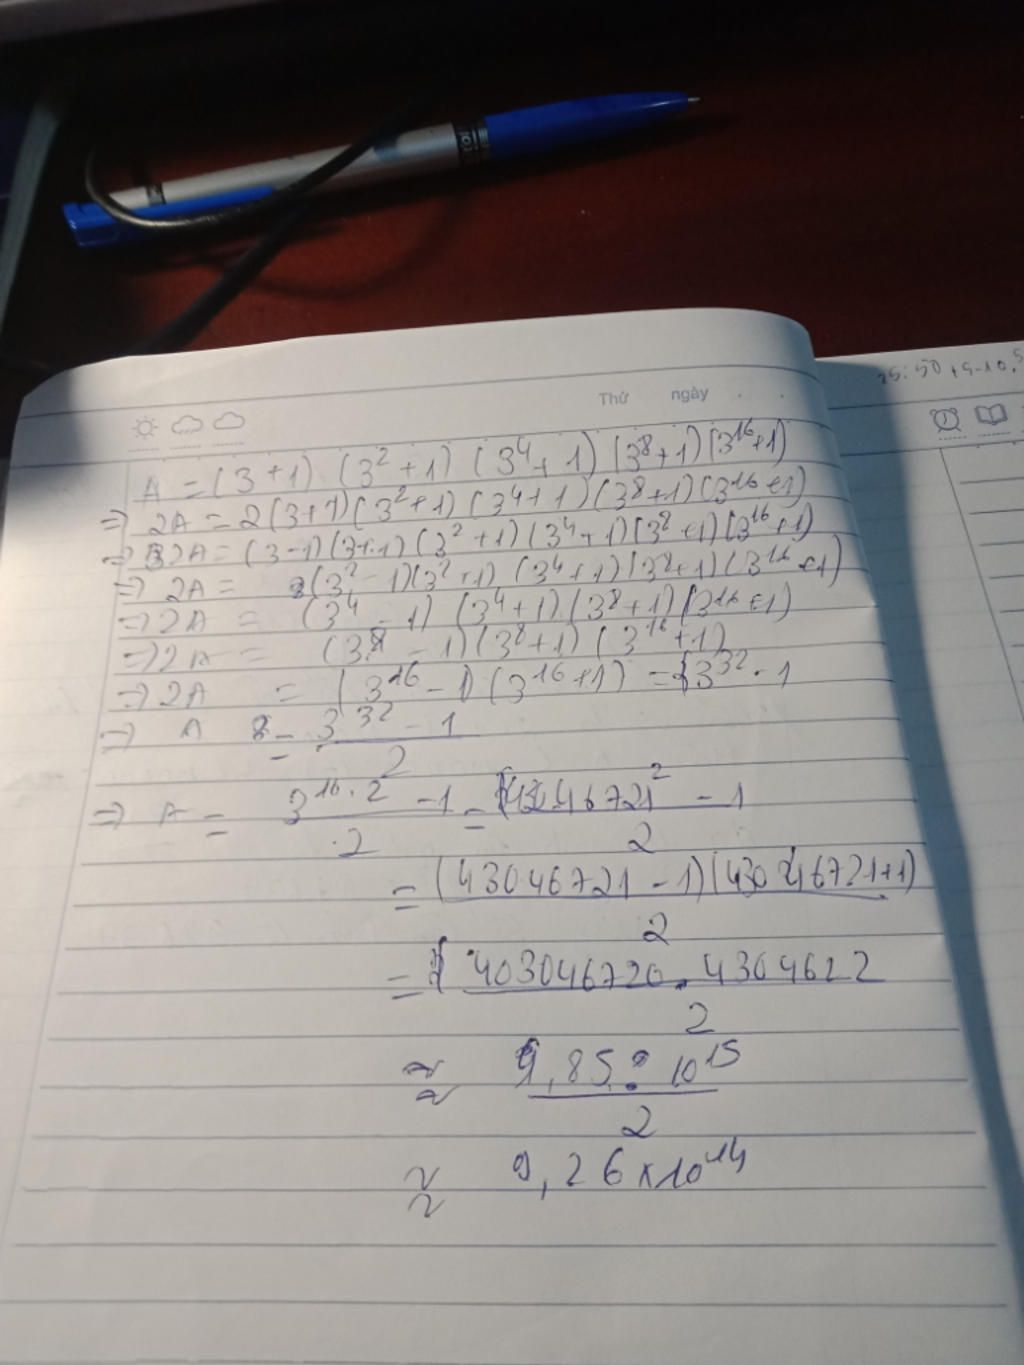 Thứ ngày
A = (3+1) (3² + 1) (3⁴ + 1) (3⁸+1) (3¹⁶+1)
=> 2A = 2(3+1)(3²+1)(3⁴+1)(3⁸+1)(3¹⁶+1)
=> 2A = (3-1)(3+1)(3²+1)(3⁴+1)(3⁸+1)(3¹⁶+1)
=> 2A = (3²-1)(3²+1)(3⁴+1)(3⁸+1)(3¹⁶+1)
=> 2A = (3⁴-1)(3⁴+1)(3⁸+1)(3¹⁶+1)
=> 2A = (3⁸-1)(3⁸+1)(3¹⁶+1)
=> 2A = (3¹⁶-1)(3¹⁶+1) = 3³² - 1
=> A = 3³² - 1
2
=> A = 3¹⁶·² - 1 = 6721² - 1
2 2
= (43046721-1)(43046721+1)
2
= 403046720 . 4304622
2
≈ ,85 . 10¹⁵
2
≈ 9,26 x 10¹⁴